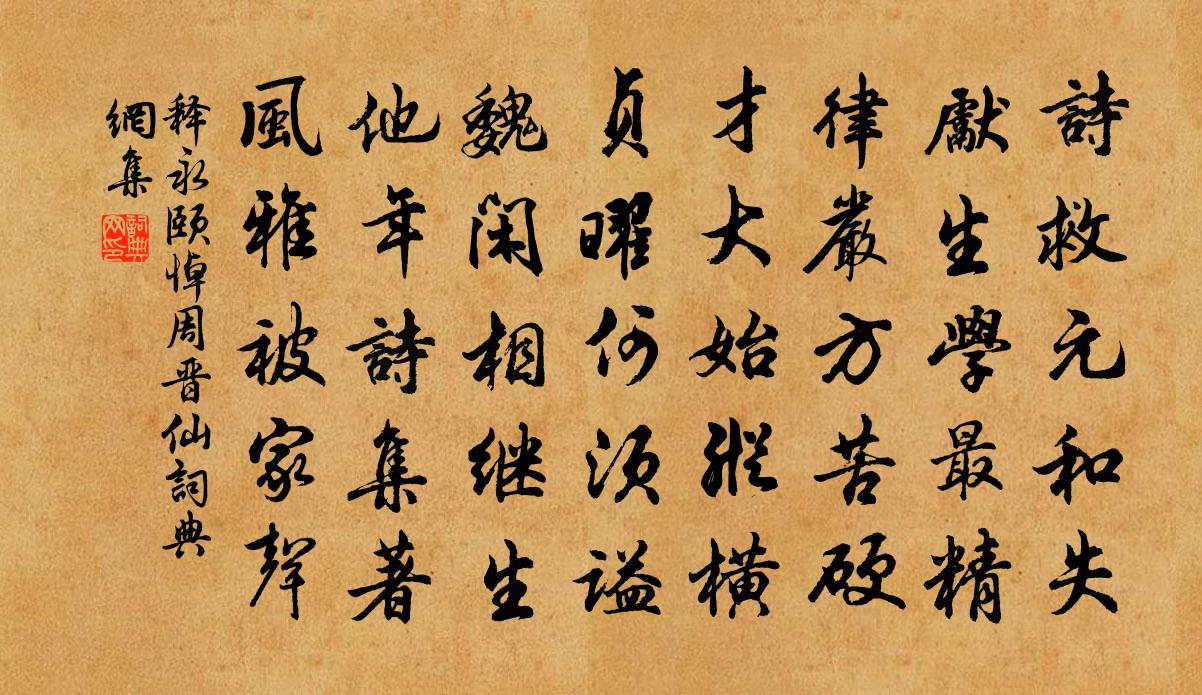 詩救元和失
獻生學最精
律嚴方苦硬
才大始縱橫
貞曜何須謚
魏閑相继生
他年詩集著
風雅被家聲
释永颐悼周晋仙詞典
網集
詞典網印